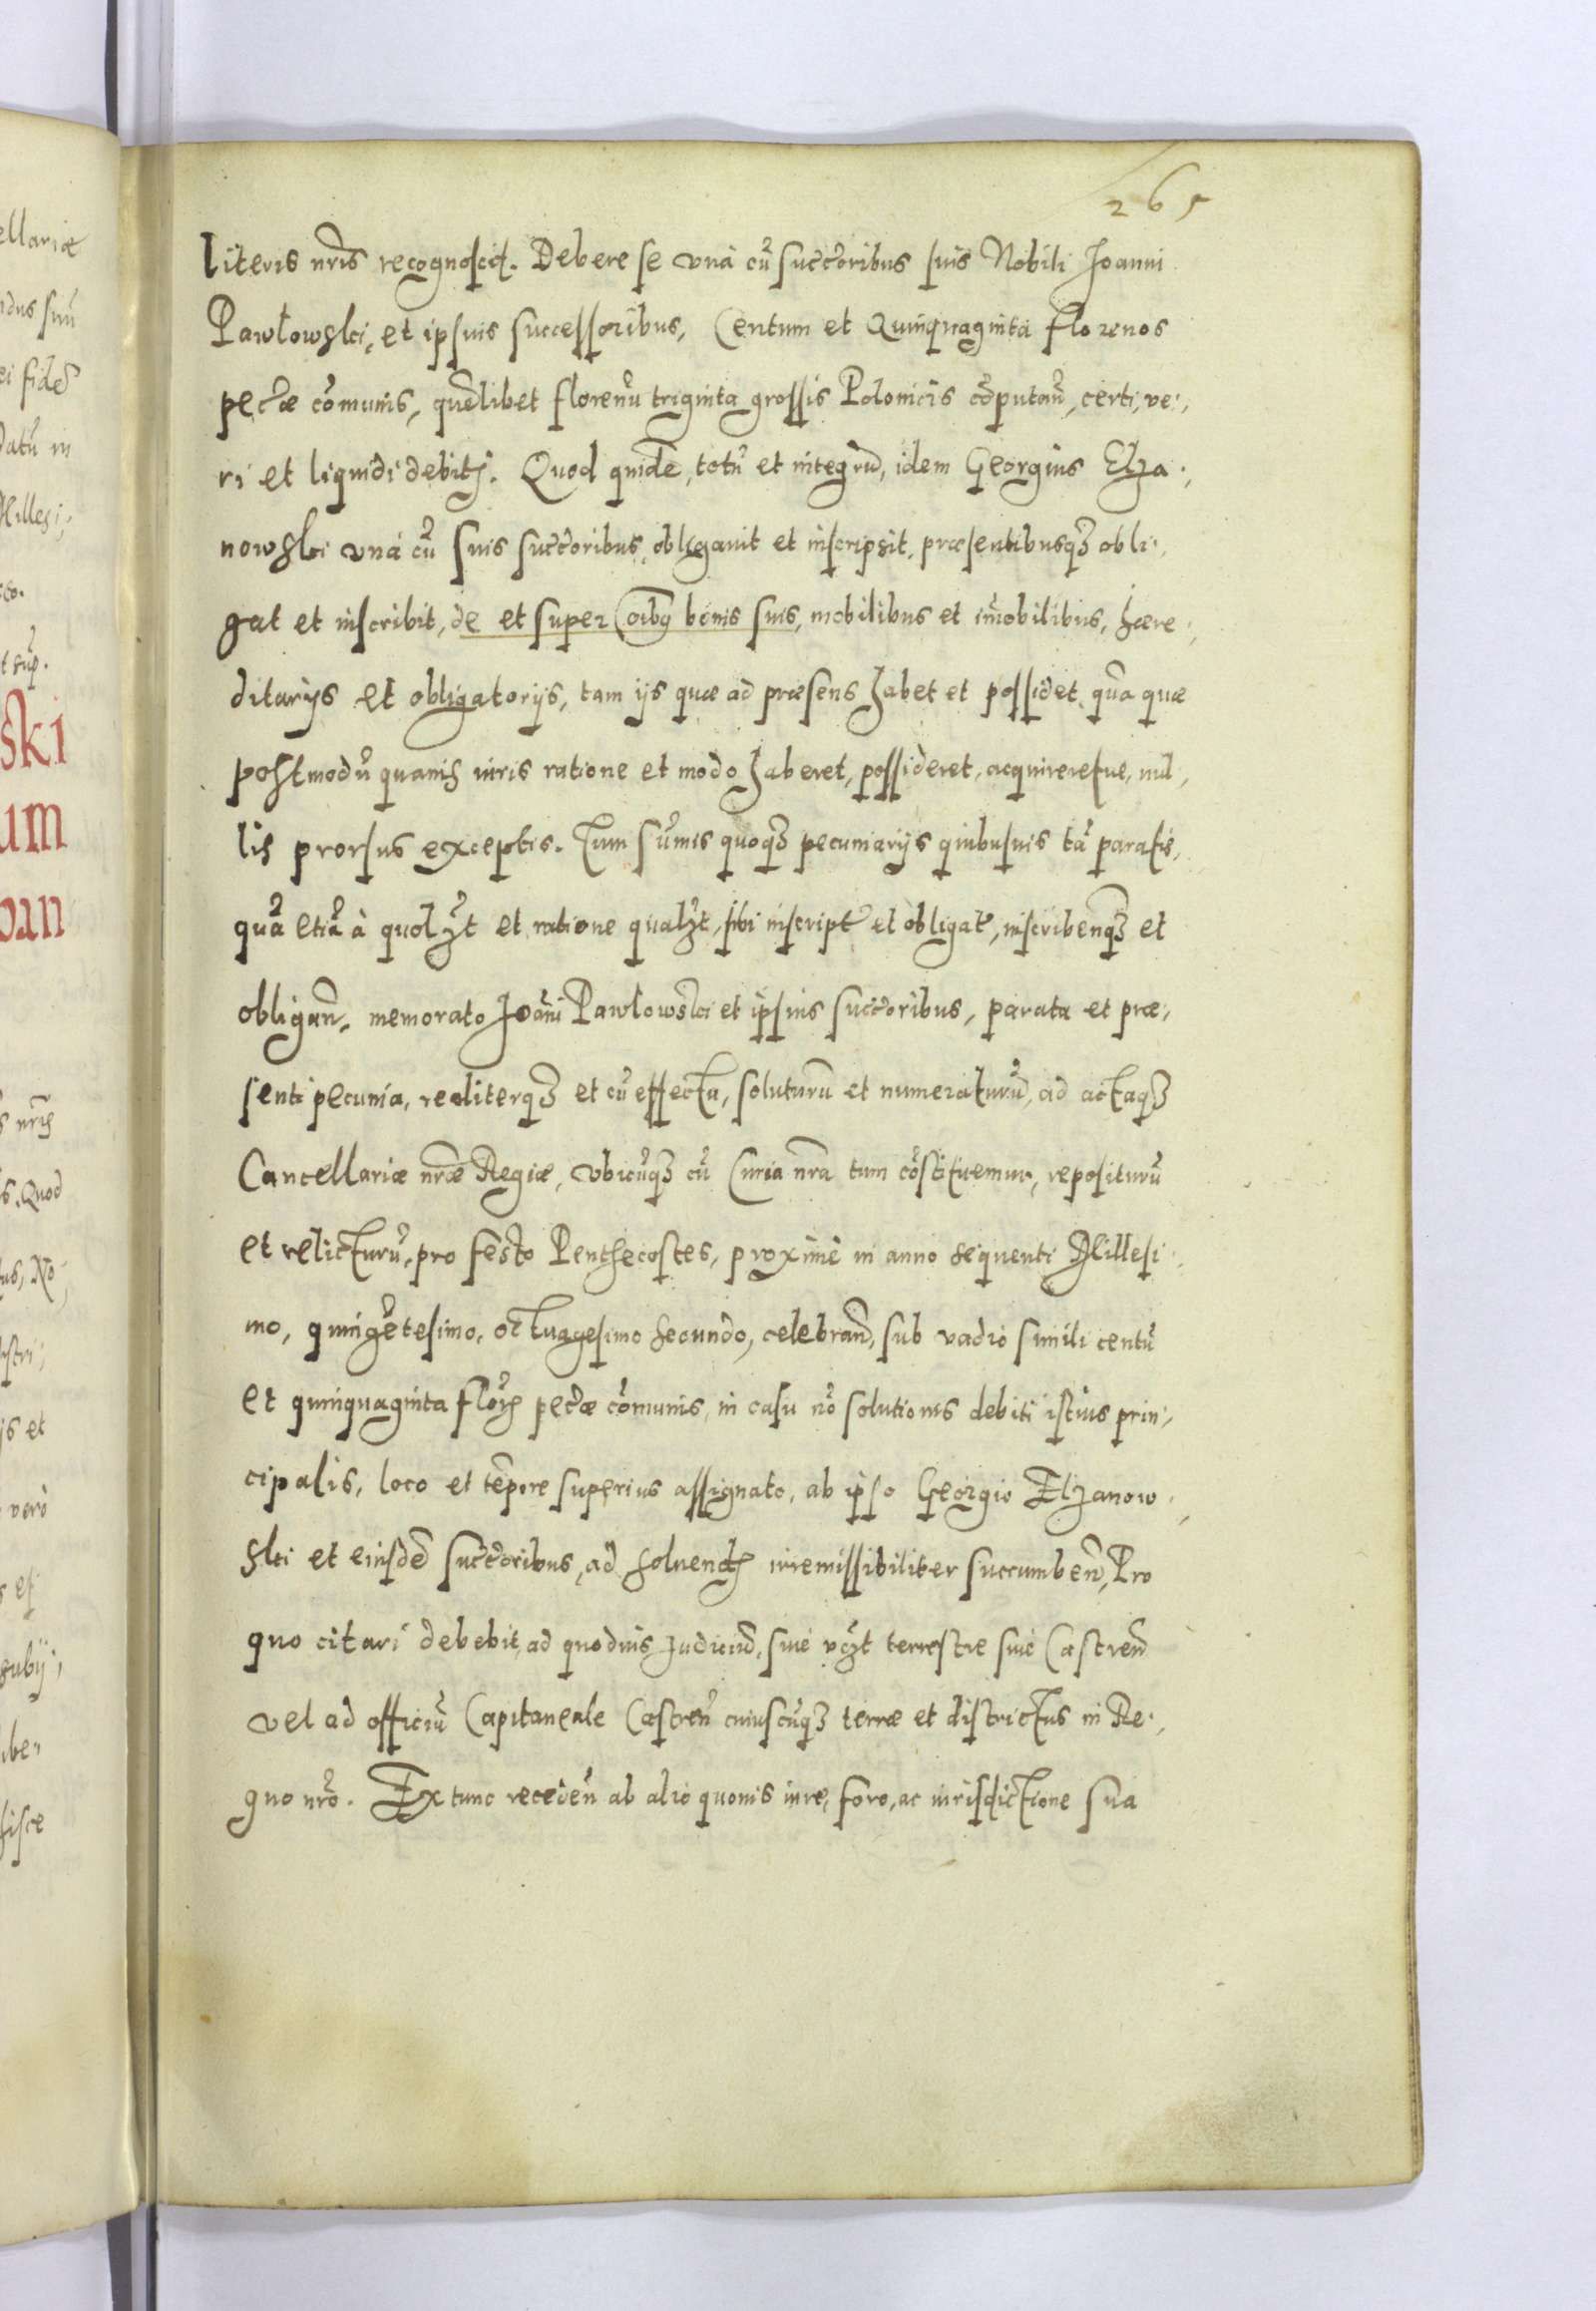 265
literis nr̃is recognoscit. Debere se vnà cũ succ̃oribus suis Nobili Joanni
Pawłowski, et ipsius successoribus, Centum et Quinquaginta florenos
pec̃æ cõmunis, quẽlibet florenũ triginta grossis Polonicis cõputañ, certi, ve,
ri et liquidi debiti. Quod quidẽ, totũ et integrũ, idem Georgius Elza,
nowski vnà cũ suis succ̃oribus, obligauit et inscripsit, præsentibusqȝ obli,
gat et inscribit, de et super oĩbꝰ bonis suis, mobilibus et im̃obilibus, hære,
ditarijs et obligatorijs, tam ijs quæ ad præsens habet et possidet, quã quæ
postmodũ quauis iuris ratione et modo haberet, possideret, acquireretue, nul,
lis prorsus exceptis. Tum sum̃is quoqȝ pecuniarijs quibusuis tã paratis,
quã etiã à quolȝt et ratione qualȝt, sibi inscript̃ et obligat̃, inscribenqȝ et
obligañ, memorato Joãni Pawłowski et ipsius succ̃oribus, parata et præ,
senti pecunia, realiterqȝ et cũ effectu, soluturũ et numeraturũ, ad actaqȝ
Cancellariæ nr̃æ Regiæ, vbicũqȝ cũ Curia nr̃a tum cõstituemur, repositurũ
et relicturũ, pro festo Penthecostes, proximè in anno sequenti Millesi,
mo, quingẽtesimo, octuagesimo secundo, celebrañ, sub vadio simili centũ
et quinquaginta floꝝ pec̃æ cõmunis, in casu nõ solutionis debiti istius prin,
cipalis, loco et tẽpore superius assignato, ab ipso Georgio Elzanow,
ski et eiusdẽ succ̃oribus, ad soluend irremissibiliter succumbeñ, Pro
quo citari debebit, ad quoduis Judiciũ, siue vȝt terrestre siue Castreñ
vel ad officiũ Capitaneale Castreñ cuiuscũqȝ terræ et districtus in Re,
gno nr̃o. Ex tunc recedeñ ab alio quouis iure, foro, ac iurisdictione sua